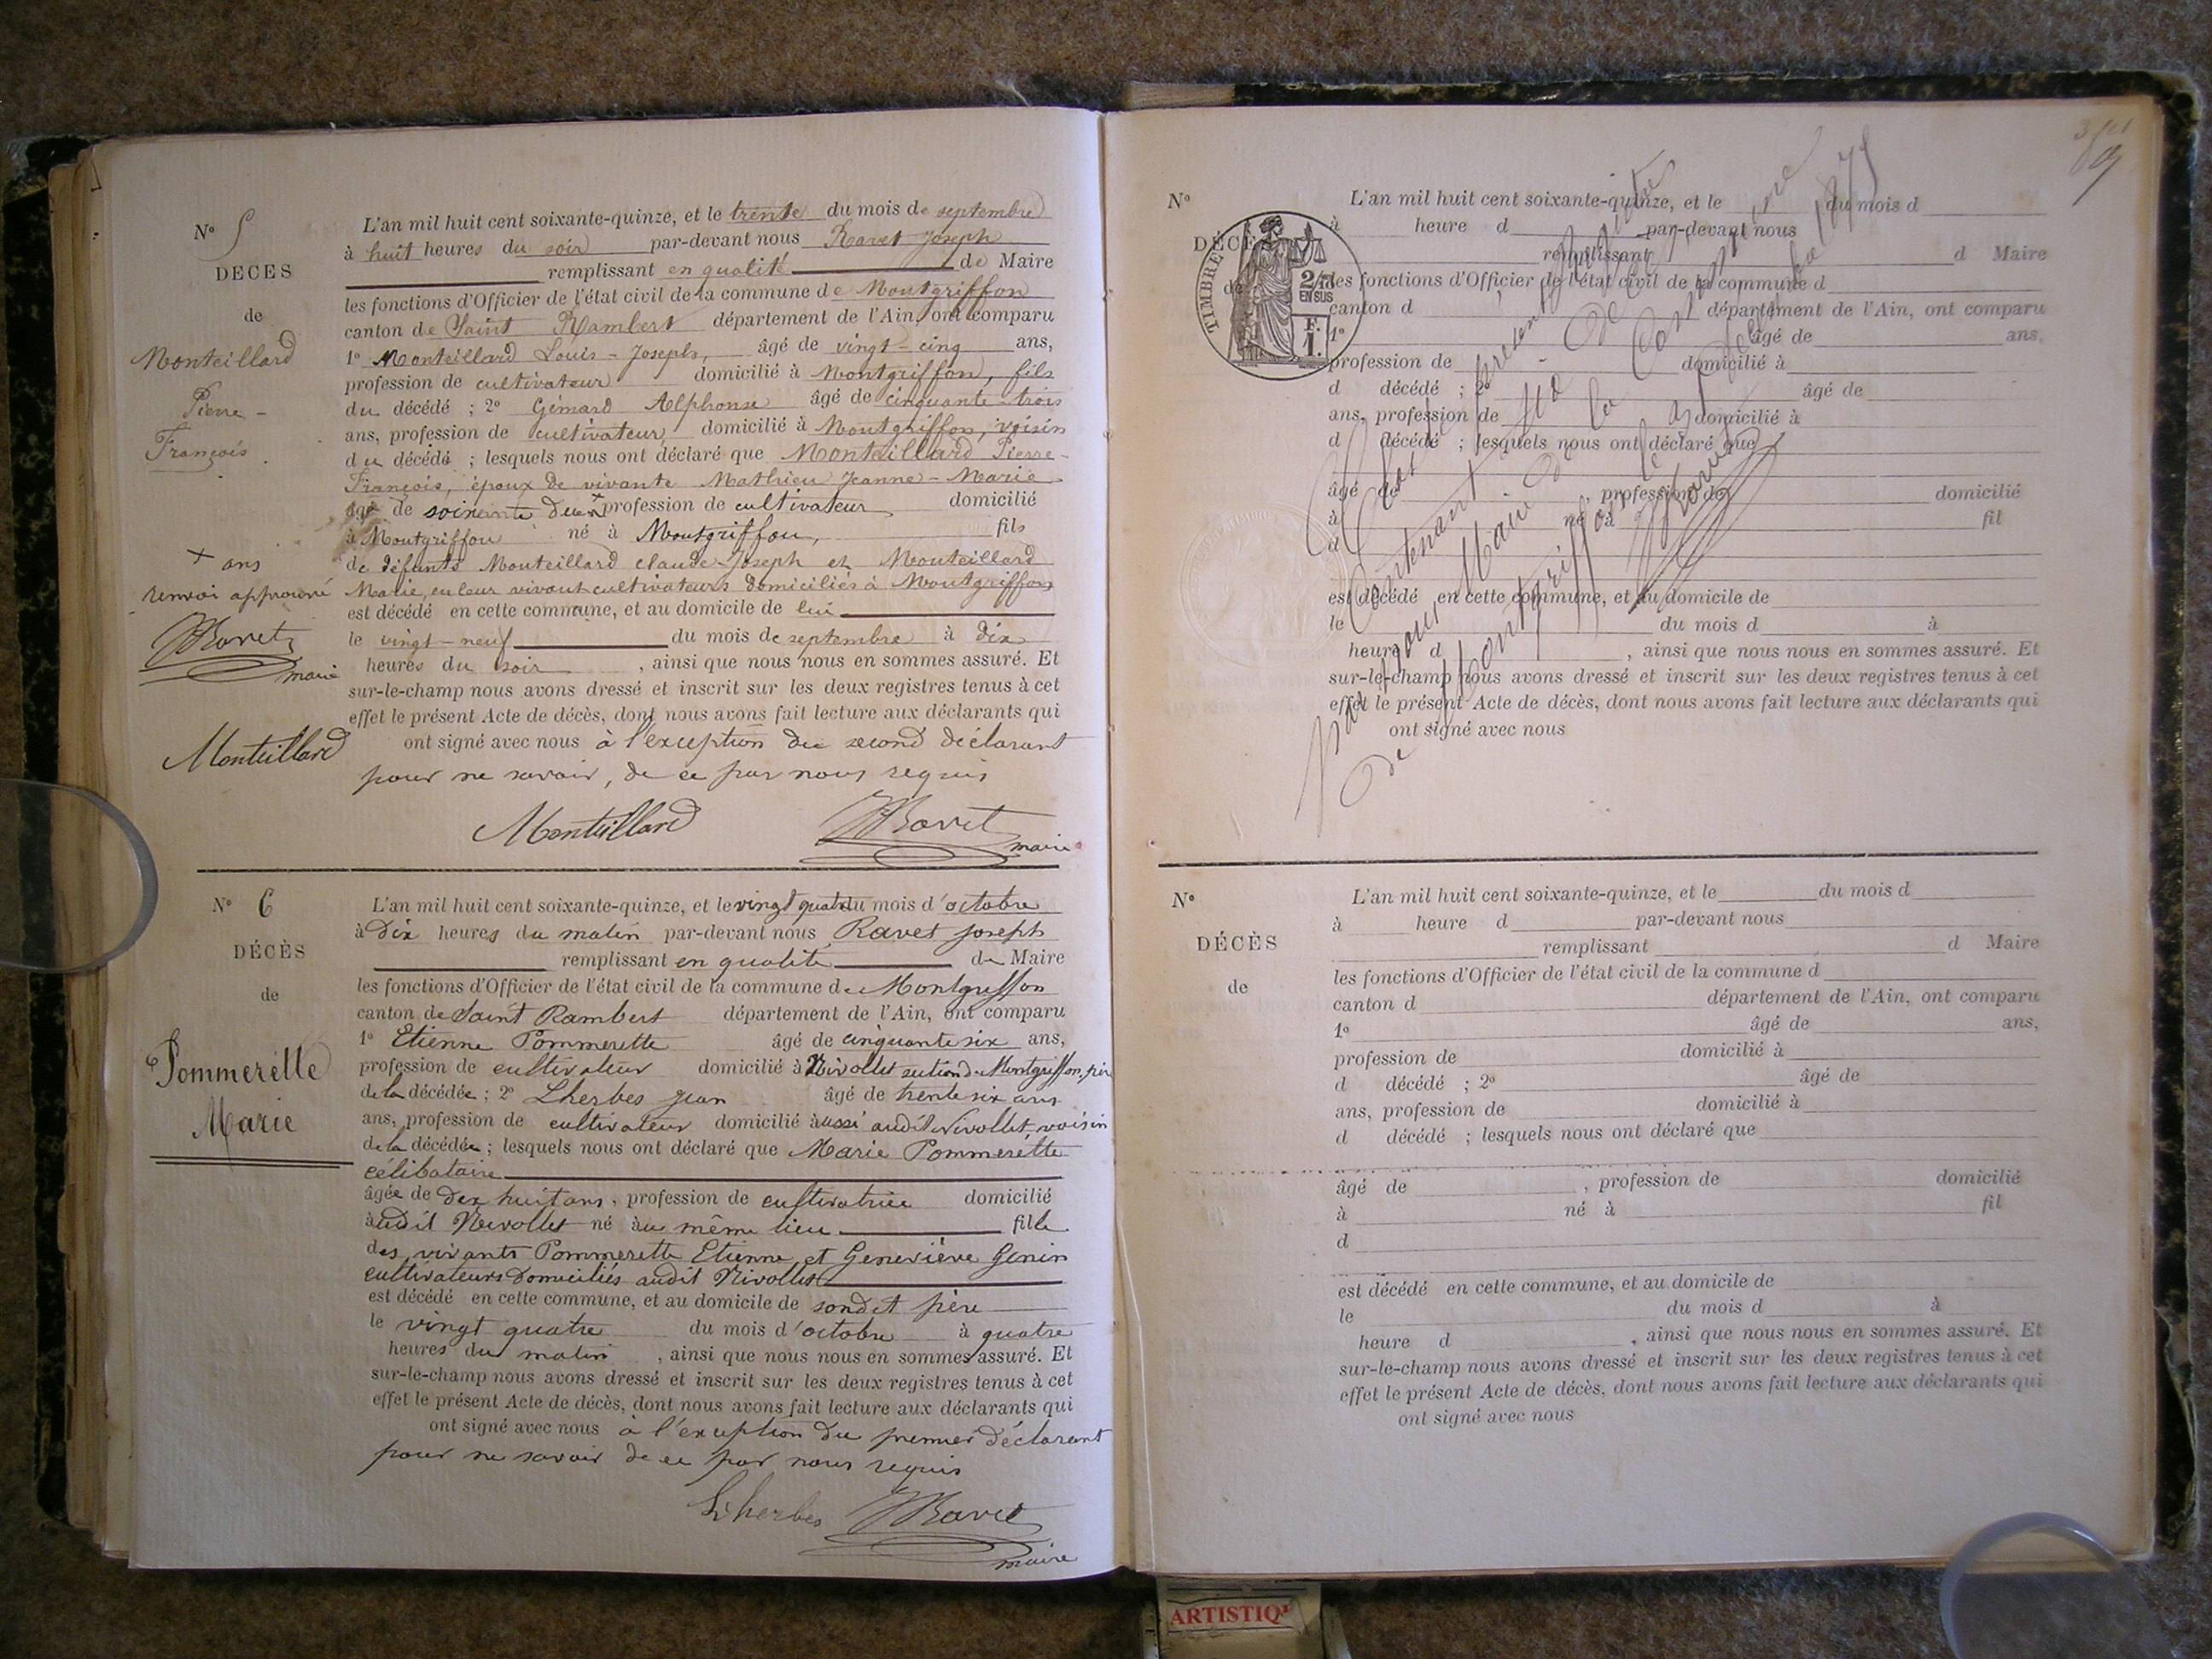 N° 5
DÉCÈS
de
Monteillard
Pierre -
François
L'an mil huit cent soixante-quinze, et le trente du mois de septembre
à huit heures du soir par-devant nous Ravet Joseph
remplissant en qualité de Maire
les fonctions d'Officier de l'état civil de la commune de Montgriffon
canton de Saint Rambert département de l'Ain, ont comparu
1° Monteillard Louis-Joseph, âgé de vingt-cinq ans,
profession de cultivateur domicilié à Montgriffon, fils
du décédé ; 2° Gémard Alphonse âgé de cinquante-trois
ans, profession de cultivateur domicilié à Montgriffon, voisin
du décédé ; lesquels nous ont déclaré que Monteillard Pierre-
François, époux de vivante Mathieu Jeanne-Marie
âgé de soixante deux + profession de cultivateur domicilié
à Montgriffon né à Montgriffon, fils
de défunts Monteillard Claude-Joseph et Monteillard
Marie, en leur vivant cultivateurs domiciliés à Montgriffon
est décédé en cette commune, et au domicile de lui
le vingt-neuf du mois de septembre à dix
heures du soir, ainsi que nous nous en sommes assuré. Et
sur-le-champ nous avons dressé et inscrit sur les deux registres tenus à cet
effet le présent Acte de décès, dont nous avons fait lecture aux déclarants qui
ont signé avec nous à l'exception du second déclarant
pour ne savoir, de ce par nous requis
+ ans
renvoi approuvé
JRavet
maire
Monteillard
Monteillard JRavet
maire
N° 6
DÉCÈS
de
Pommerette
Marie
L'an mil huit cent soixante-quinze, et le vingt quatre du mois d'octobre
à dix heures du matin par-devant nous Ravet joseph
remplissant en qualité de Maire
les fonctions d'Officier de l'état civil de la commune de Montgriffon
canton de Saint Rambert département de l'Ain, ont comparu
1° Etienne Pommerette âgé de cinquante six ans,
profession de cultivateur domicilié à Nivollet section de Montgriffon, père
de la décédée ; 2° Lherbes jean âgé de trente six ans
ans, profession de cultivateur domicilié à aussi audit Nivollet voisin
de la décédée ; lesquels nous ont déclaré que Marie Pommerette
célibataire
âgée de dix huit ans, profession de cultivatrice domicilié
à audit Nivollet né à au même lieu fille
des vivants Pommerette Etienne et Geneviève Genin
cultivateurs domiciliés audit Nivollet
est décédé en cette commune, et au domicile de son dit père
le vingt quatre du mois d'octobre à quatre
heures du matin, ainsi que nous nous en sommes assuré. Et
sur-le-champ nous avons dressé et inscrit sur les deux registres tenus à cet
effet le présent Acte de décès, dont nous avons fait lecture aux déclarants qui
ont signé avec nous à l'exception du premier déclarant
pour ne savoir de ce par nous requis
Lherbes JRavet
maire
N°
DÉCÈS
de
TIMBRE
2/10
EN SUS
F.
1.
L'an mil huit cent soixante-quinze, et le du mois d
à heure d par-devant nous
remplissant d Maire
les fonctions d'Officier de l'état civil de la commune d
canton d département de l'Ain, ont comparu
1° âgé de ans,
profession de domicilié à
d décédé ; 2° âgé de
ans, profession de domicilié à
d décédé ; lesquels nous ont déclaré que
âgé de , profession de domicilié
à né à fil
d
est décédé en cette commune, et au domicile de
le du mois d à
heure d , ainsi que nous nous en sommes assuré. Et
sur-le-champ nous avons dressé et inscrit sur les deux registres tenus à cet
effet le présent Acte de décès, dont nous avons fait lecture aux déclarants qui
ont signé avec nous
N°
DÉCÈS
de
L'an mil huit cent soixante-quinze, et le du mois d
à heure d par-devant nous
remplissant d Maire
les fonctions d'Officier de l'état civil de la commune d
canton d département de l'Ain, ont comparu
1° âgé de ans,
profession de domicilié à
d décédé ; 2° âgé de
ans, profession de domicilié à
d décédé ; lesquels nous ont déclaré que
âgé de , profession de domicilié
à né à fil
d
est décédé en cette commune, et au domicile de
le du mois d à
heure d , ainsi que nous nous en sommes assuré. Et
sur-le-champ nous avons dressé et inscrit sur les deux registres tenus à cet
effet le présent Acte de décès, dont nous avons fait lecture aux déclarants qui
ont signé avec nous
ARTISTIQ